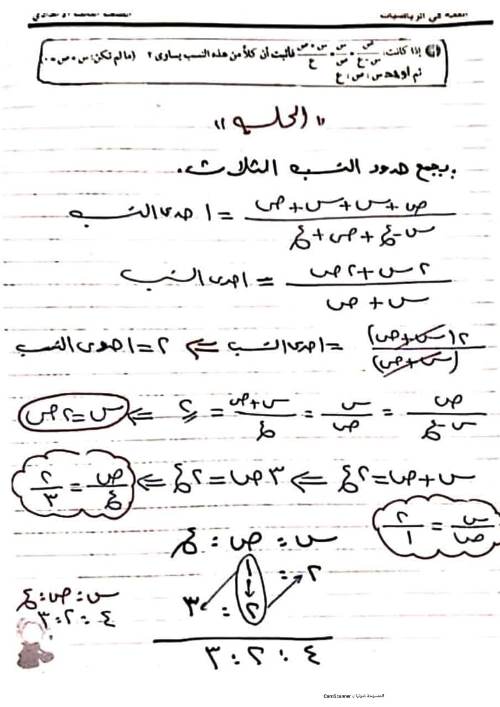 إذا كانت: ص/(س - ع) = س/ص = (س + ص)/ع فأثبت أن كلاً من هذه النسب يساوى ٢ (ما لم تكن: س + ص = ٠)
ثم أوجد س : ص : ع
" الحل "
بجمع حدود النسب الثلاث.
(ص + س + س + ص)/(س - ع + ص + ع) = احدى النسب
(٢س + ٢ص)/(س + ص) = احدى النسب
٢(س+ص)/(س+ص) = احدى النسب ⇐ ٢ = احدى النسب
ص/(س-ع) = س/ص = (س+ص)/ع = ٢ ⇐ س = ٢ص
س + ص = ٢ع ⇐ ٣ص = ٢ع ⇐ ص/ع = ٢/٣
س/ص = ٢/١
س : ص : ع
٢ : ١
٢ : ٣
٤ : ٢ : ٣
س : ص : ع
٤ : ٢ : ٣
CamScanner